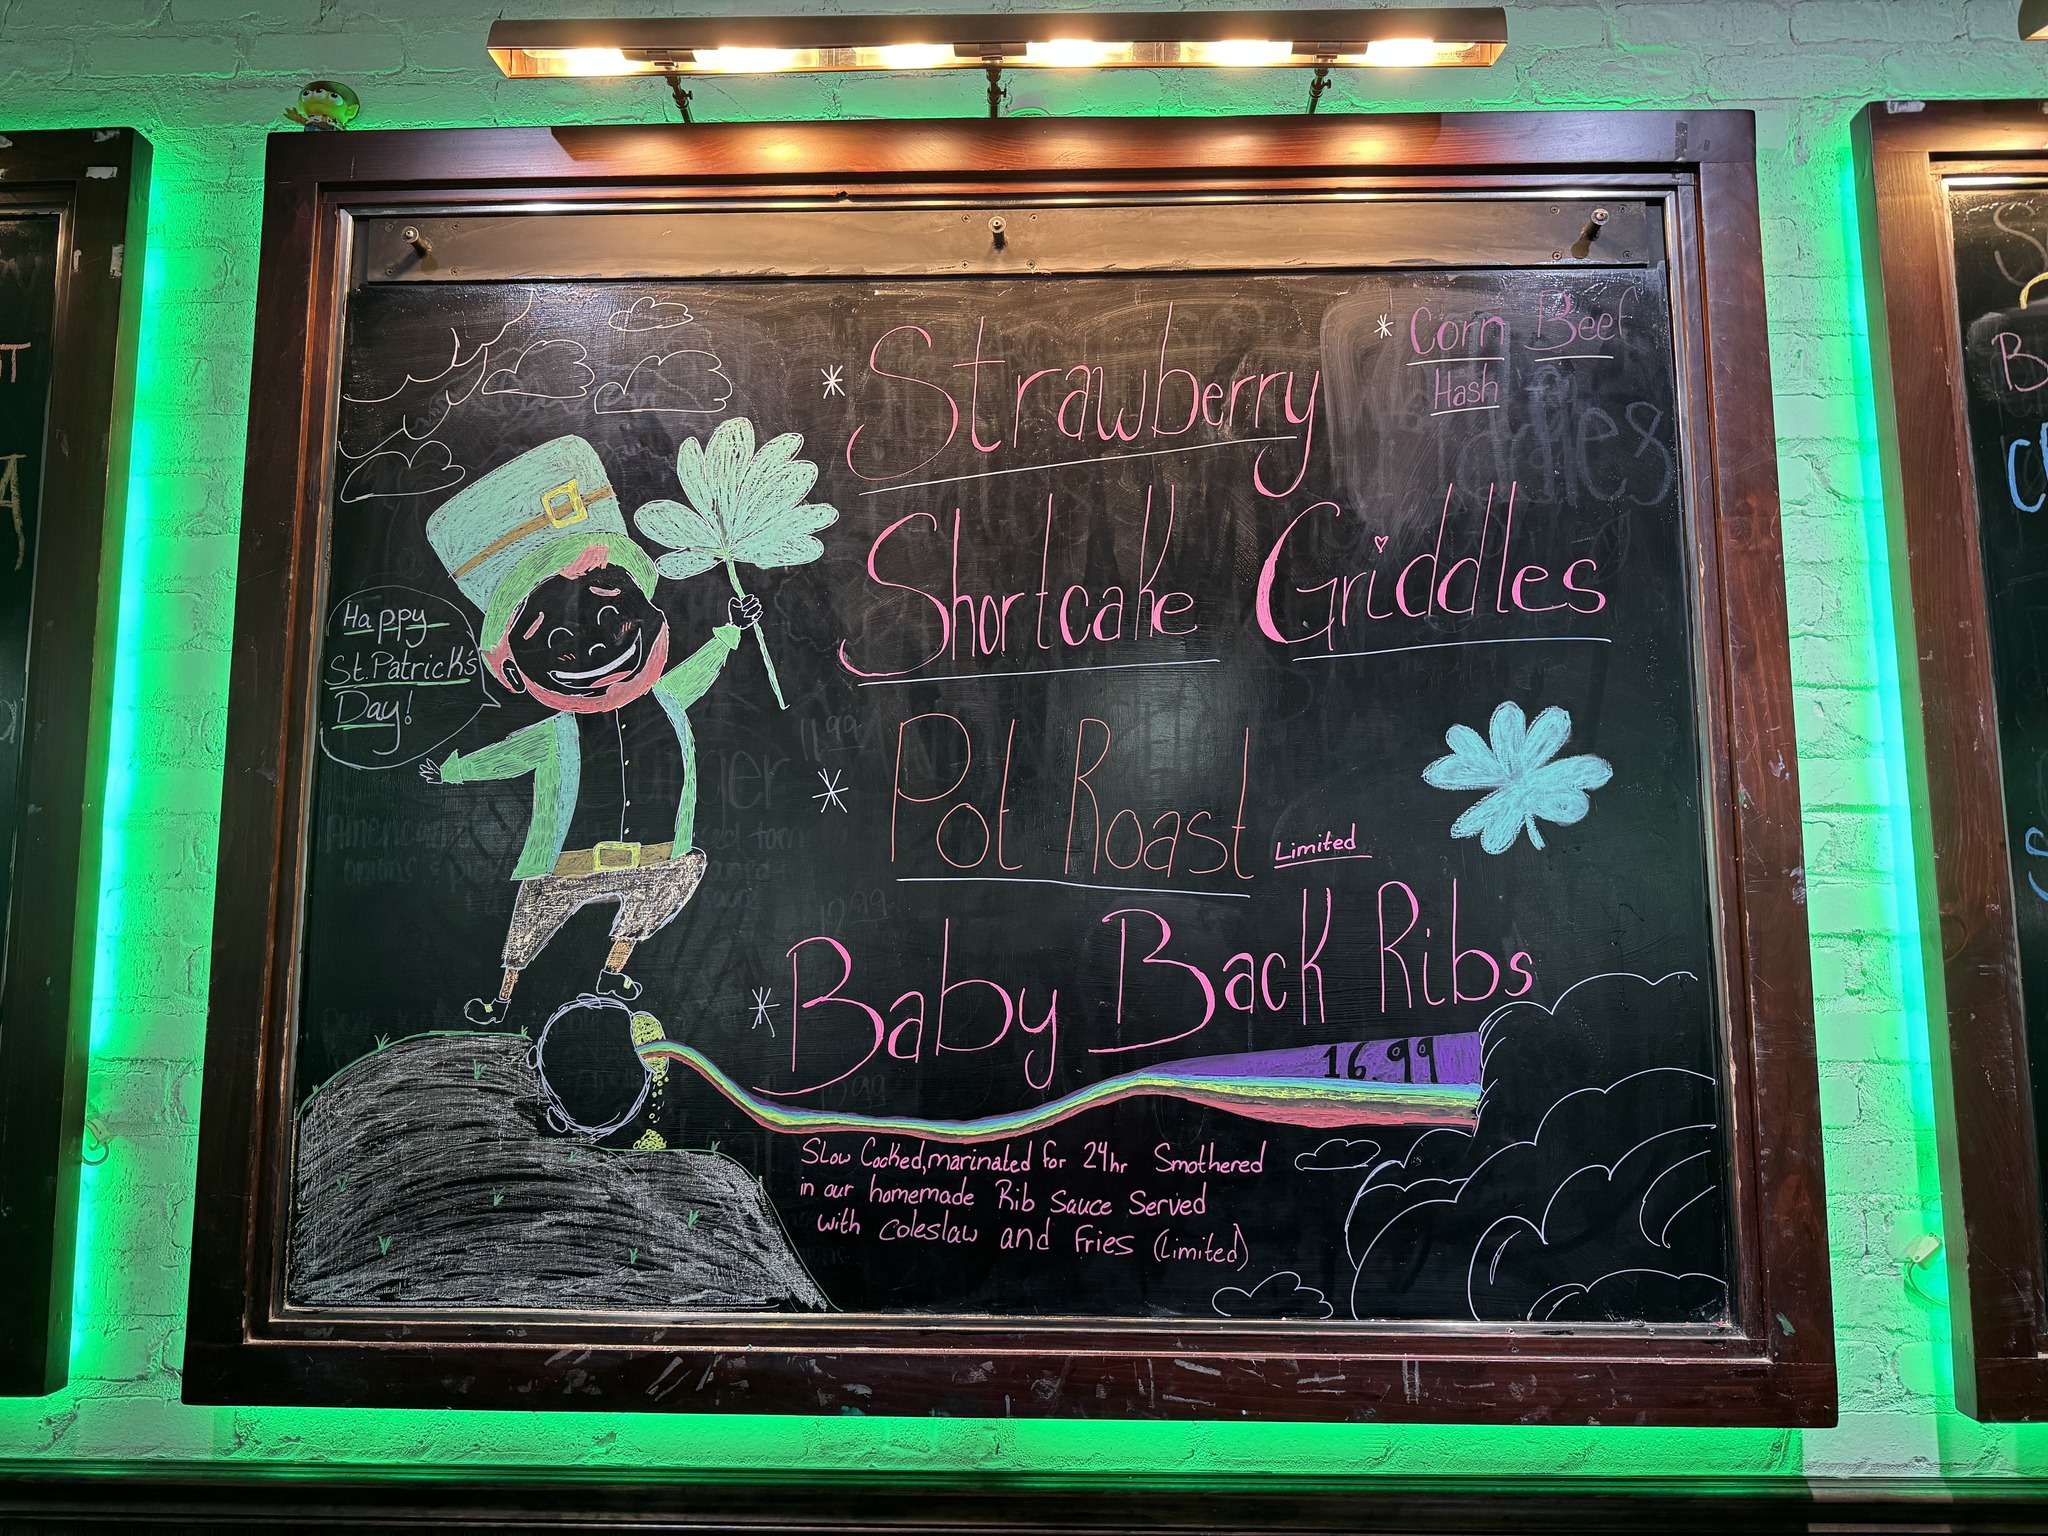 * Strawberry
Shortcake Griddles
* Corn Beef
Hash
Happy
St. Patrick's
Day!
* Pot Roast Limited
* Baby Back Ribs
16.99
Slow Cocked, marinated for 24hr Smothered
in our homemade Rib sauce Served
with coleslaw and fries (Limited)